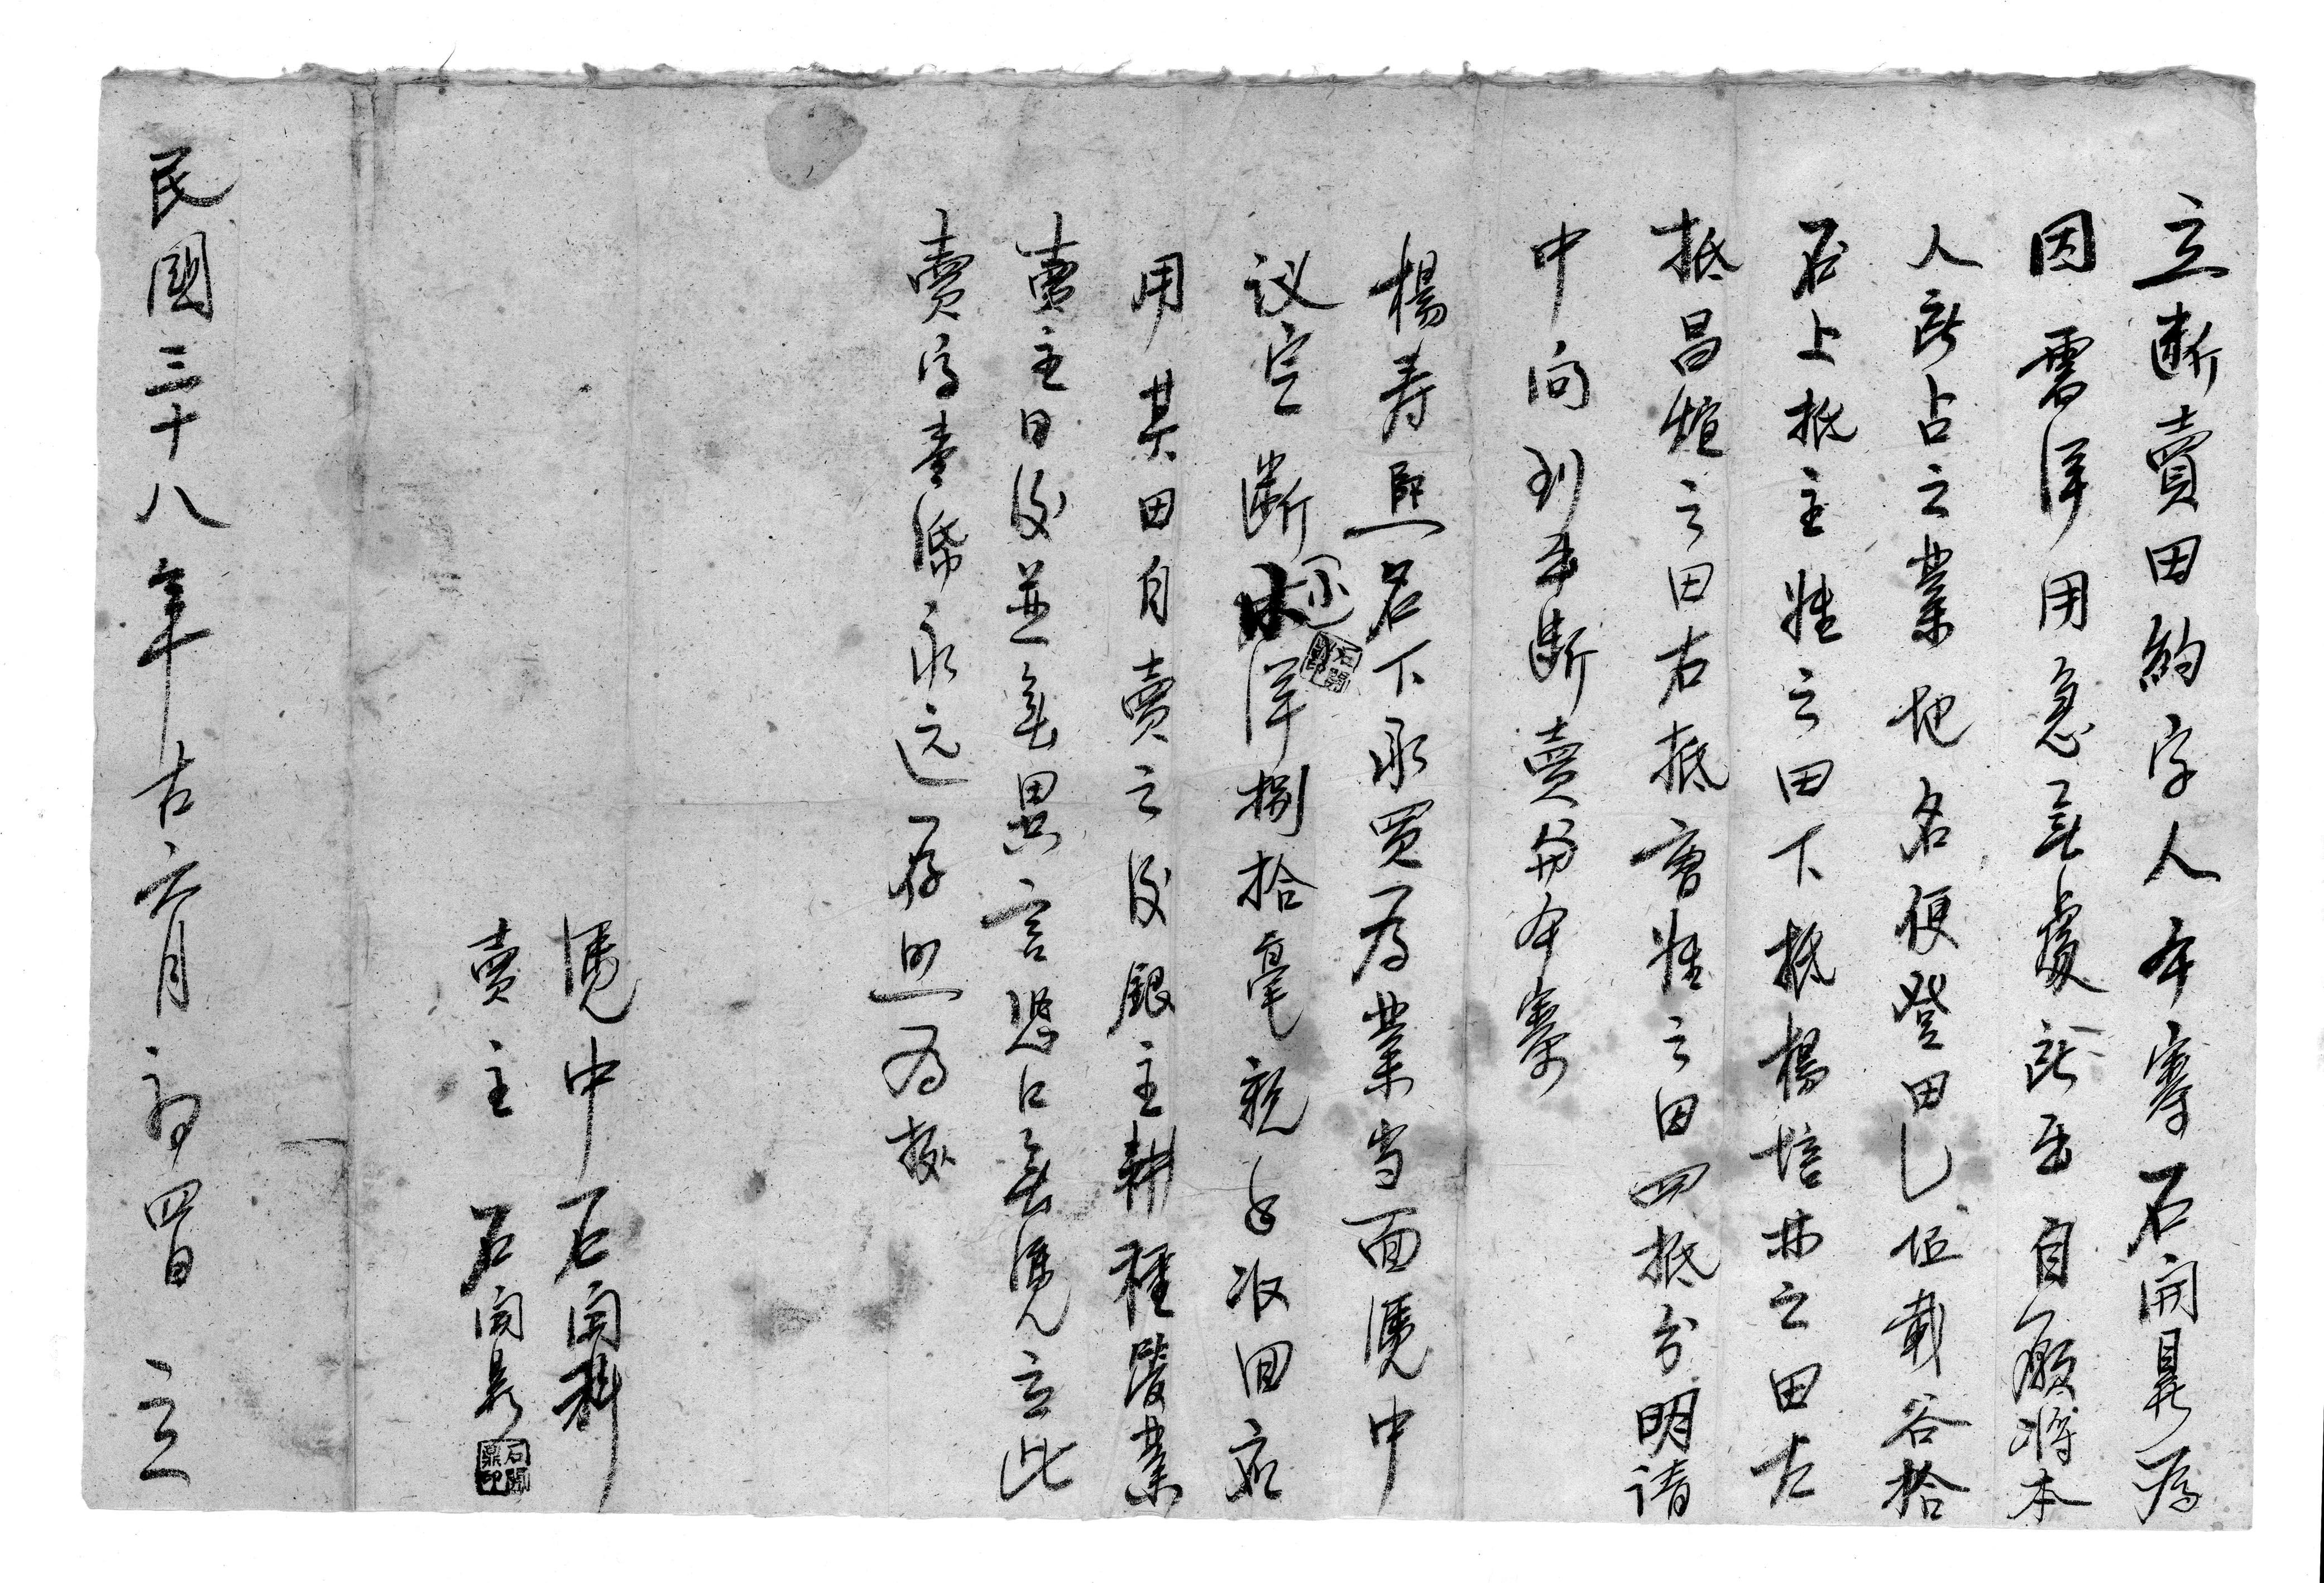 立断賣田約字人本寨石開鼎為
因需洋用急無處所出自願將本
人所占之業地名便登田乚伍載谷拾
石上抵主姓之田下抵楊培林之田左
抵昌煊之田右抵曹姓之田四抵分明請
中问到手断賣與本寨
楊寿熙名下承買為業当面凴中
议定断还洋捌拾毫親手收回応
用其田自賣之後銀主耕種管業
賣主日後並無異言恐口無凴立此
賣字壹紙永远存照為據
凴中 石開科
賣主 石開鼎 石開鼎印
民國三十八年古六月初四日 立